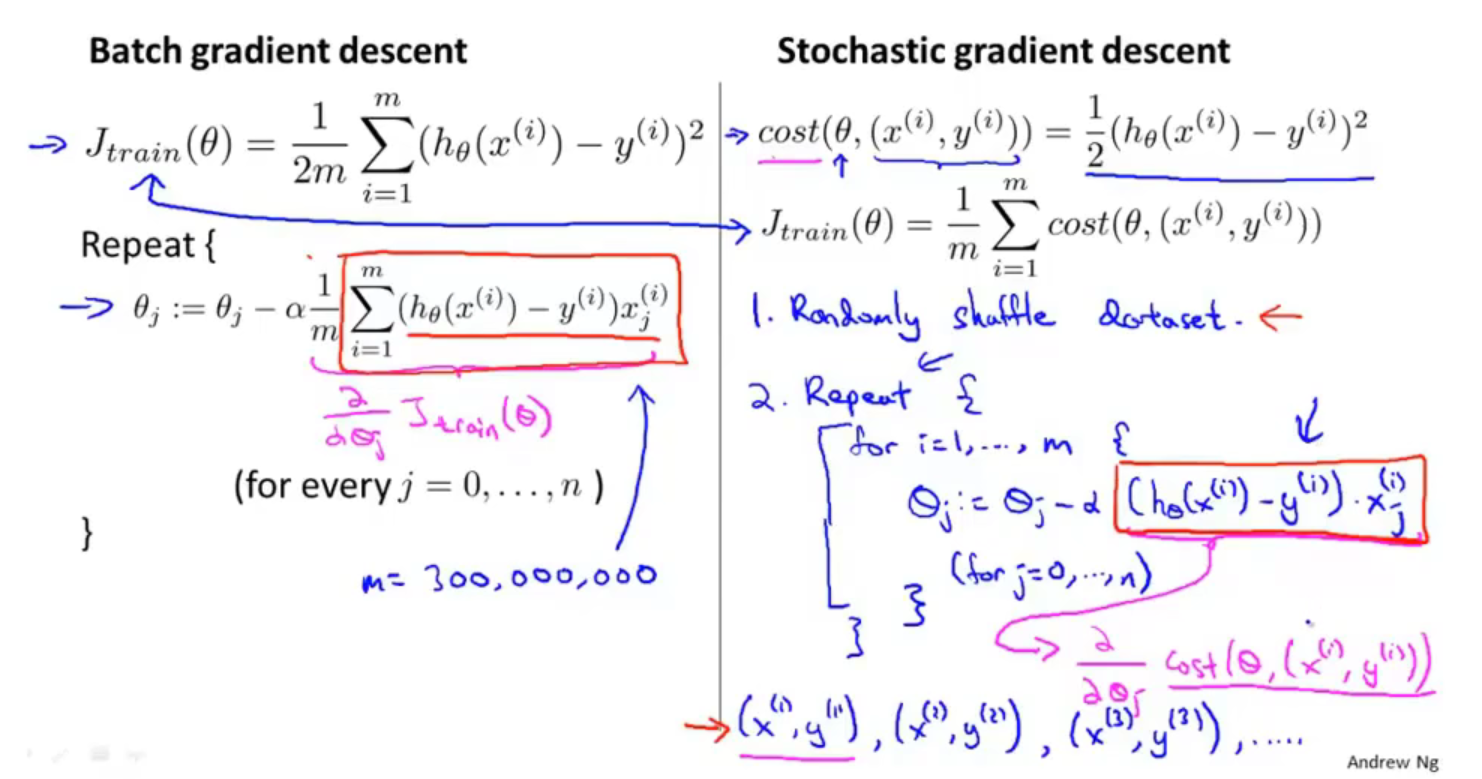 Batch gradient descent
→ J_train(θ) = 1/2m ∑_{i=1}^{m} (h_θ(x^(i)) − y^(i))²
Repeat {
→ θ_j := θ_j − α 1/m ∑_{i=1}^{m} (h_θ(x^(i)) − y^(i))x_j^(i)
∂/∂θ_j J_train(θ)
(for every j = 0, . . . , n )
}
m = 300,000,000
Stochastic gradient descent
→ cost(θ, (x^(i), y^(i))) = 1/2 (h_θ(x^(i)) − y^(i))²
J_train(θ) = 1/m ∑_{i=1}^{m} cost(θ, (x^(i), y^(i)))
1. Randomly shuffle dataset. ←
2. Repeat {
for i=1,..., m {
θ_j := θ_j − α (h_θ(x^(i)) − y^(i)) · x_j^(i)
(for j=0,...,n)
}
}
→ ∂/∂θ_j cost(θ, (x^(i), y^(i)))
→ (x^(1), y^(1)), (x^(2), y^(2)), (x^(3), y^(3)), .....
Andrew Ng